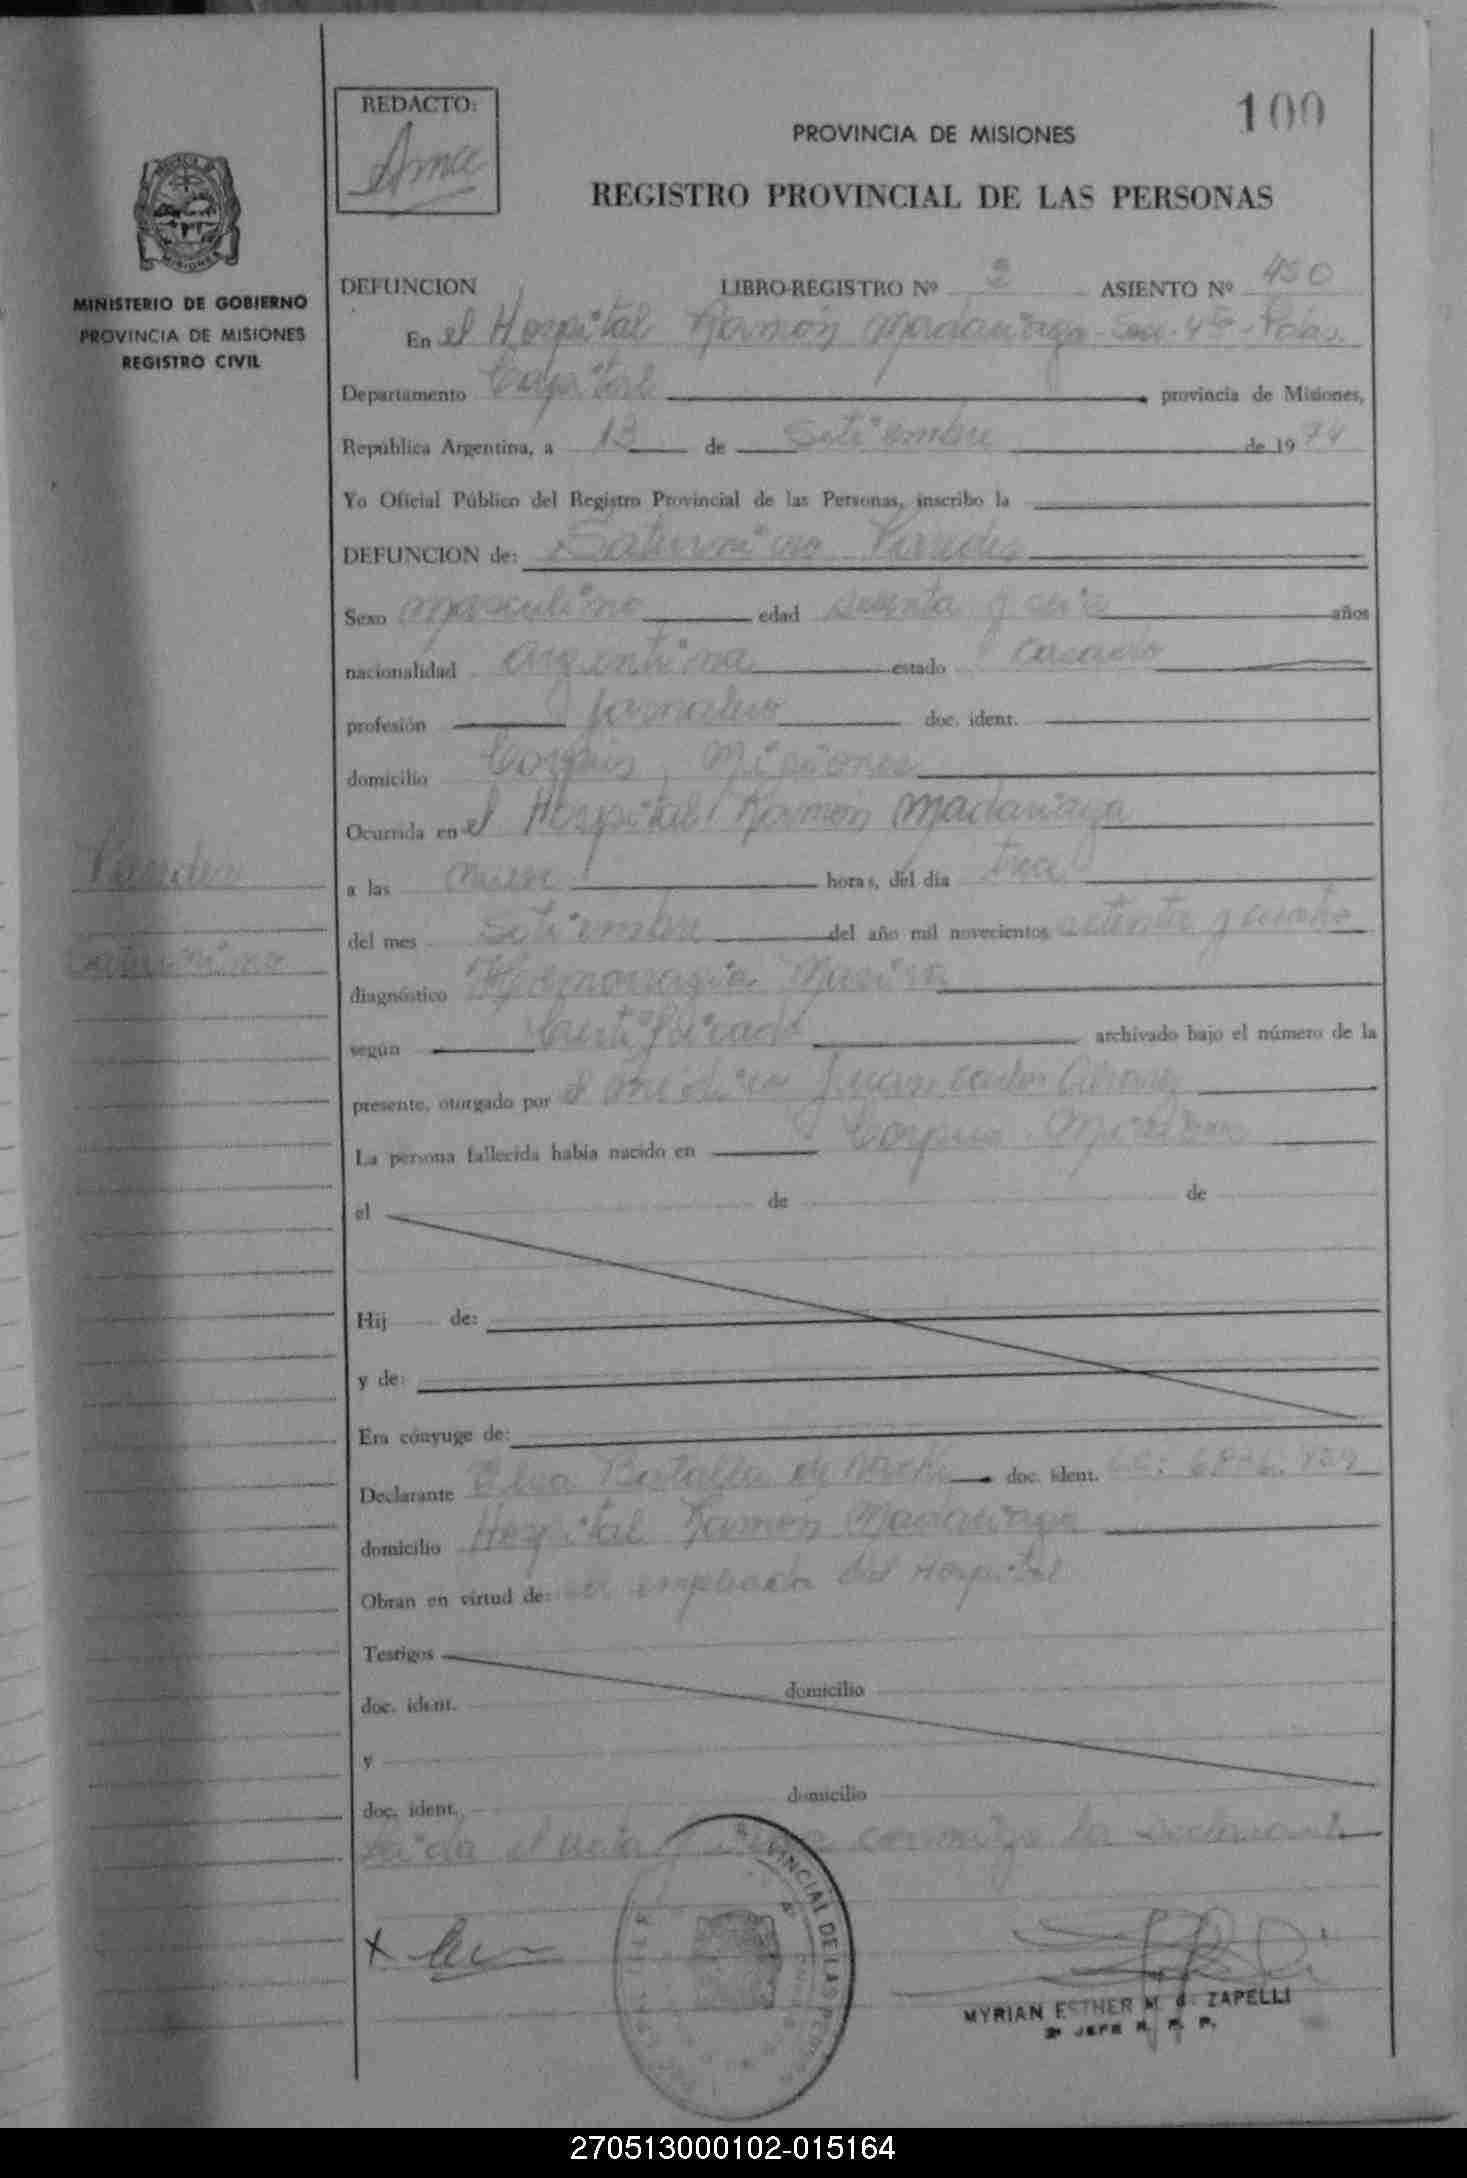 REDACTO:
100
PROVINCIA DE MISIONES
REGISTRO PROVINCIAL DE LAS PERSONAS
MINISTERIO DE GOBIERNO
PROVINCIA DE MISIONES
REGISTRO CIVIL
DEFUNCION LIBRO-REGISTRO Nº 3 ASIENTO Nº 450
En el Hospital Ramón Madariaga - Secc. 4ta - Pdas.
Departamento Capital provincia de Misiones,
República Argentina, a 13 de Setiembre de 1974
Yo Oficial Público del Registro Provincial de las Personas, inscribo la
DEFUNCION de: Saturnino Paredes
Sexo masculino edad y años
nacionalidad argentina estado casado
profesión Jornalero doc. ident.
domicilio Corpus, Misiones
Ocurrida en el Hospital Ramón Madariaga
a las nueve horas, del día trece
del mes Setiembre del año mil novecientos setenta y cuatro
Paredes
Saturnino
diagnóstico Hemorragia Masiva
según Certificado archivado bajo el número de la
presente, otorgado por el médico Juan Carlos Alvarez
La persona fallecida había nacido en Corpus - Misiones
el de de
Hij de:
y de:
Era cónyuge de:
Declarante Elsa Batalla de doc. ident. L.C.:
domicilio Hospital Ramón Madariaga
Obran en virtud de: ser empleada del Hospital
Testigos
doc. ident. domicilio
y
doc. ident. domicilio
Leida el acta la declarante
PROVINCIAL DE LAS PERSONAS
MYRIAN ESTHER M. G. ZAPELLI
2º JEFE R. P. P.
270513000102-015164